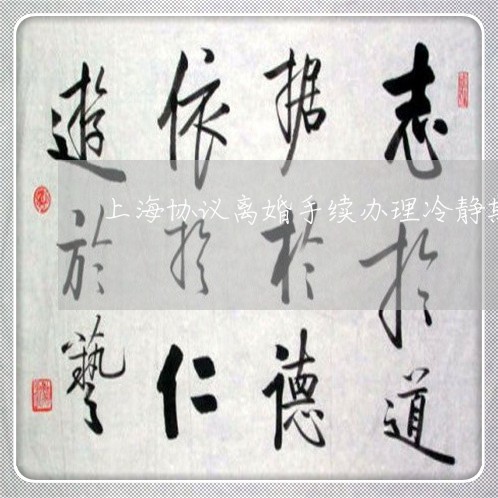 志於道
据於德
依於仁
遊於藝
上海协议离婚手续办理冷静